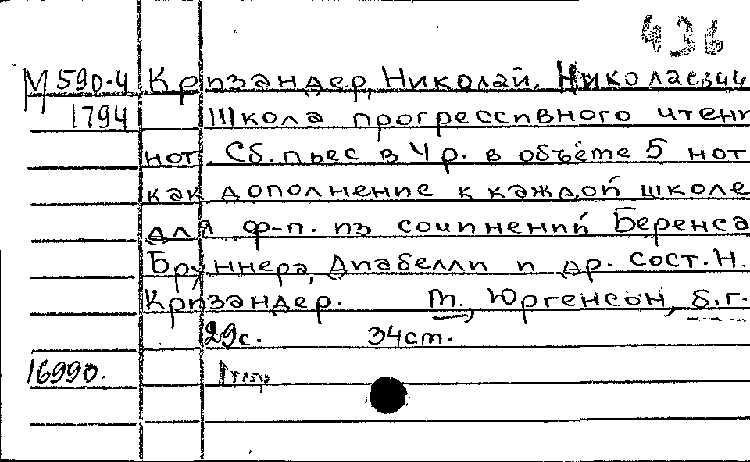 436
М 590-4 Кризандер, Николай Николаевич
1794 Школа прогрессивного чтени
нот. Сб. пьес в 4 р. в объёме 5 нот
как дополнение к каждой школе
для ф-п. из сочинений Беренса
Бруннера, Диабелли и др. Сост. Н.
Кризандер. М., Юргенсон, б.г.
29с. 34см.
16990.